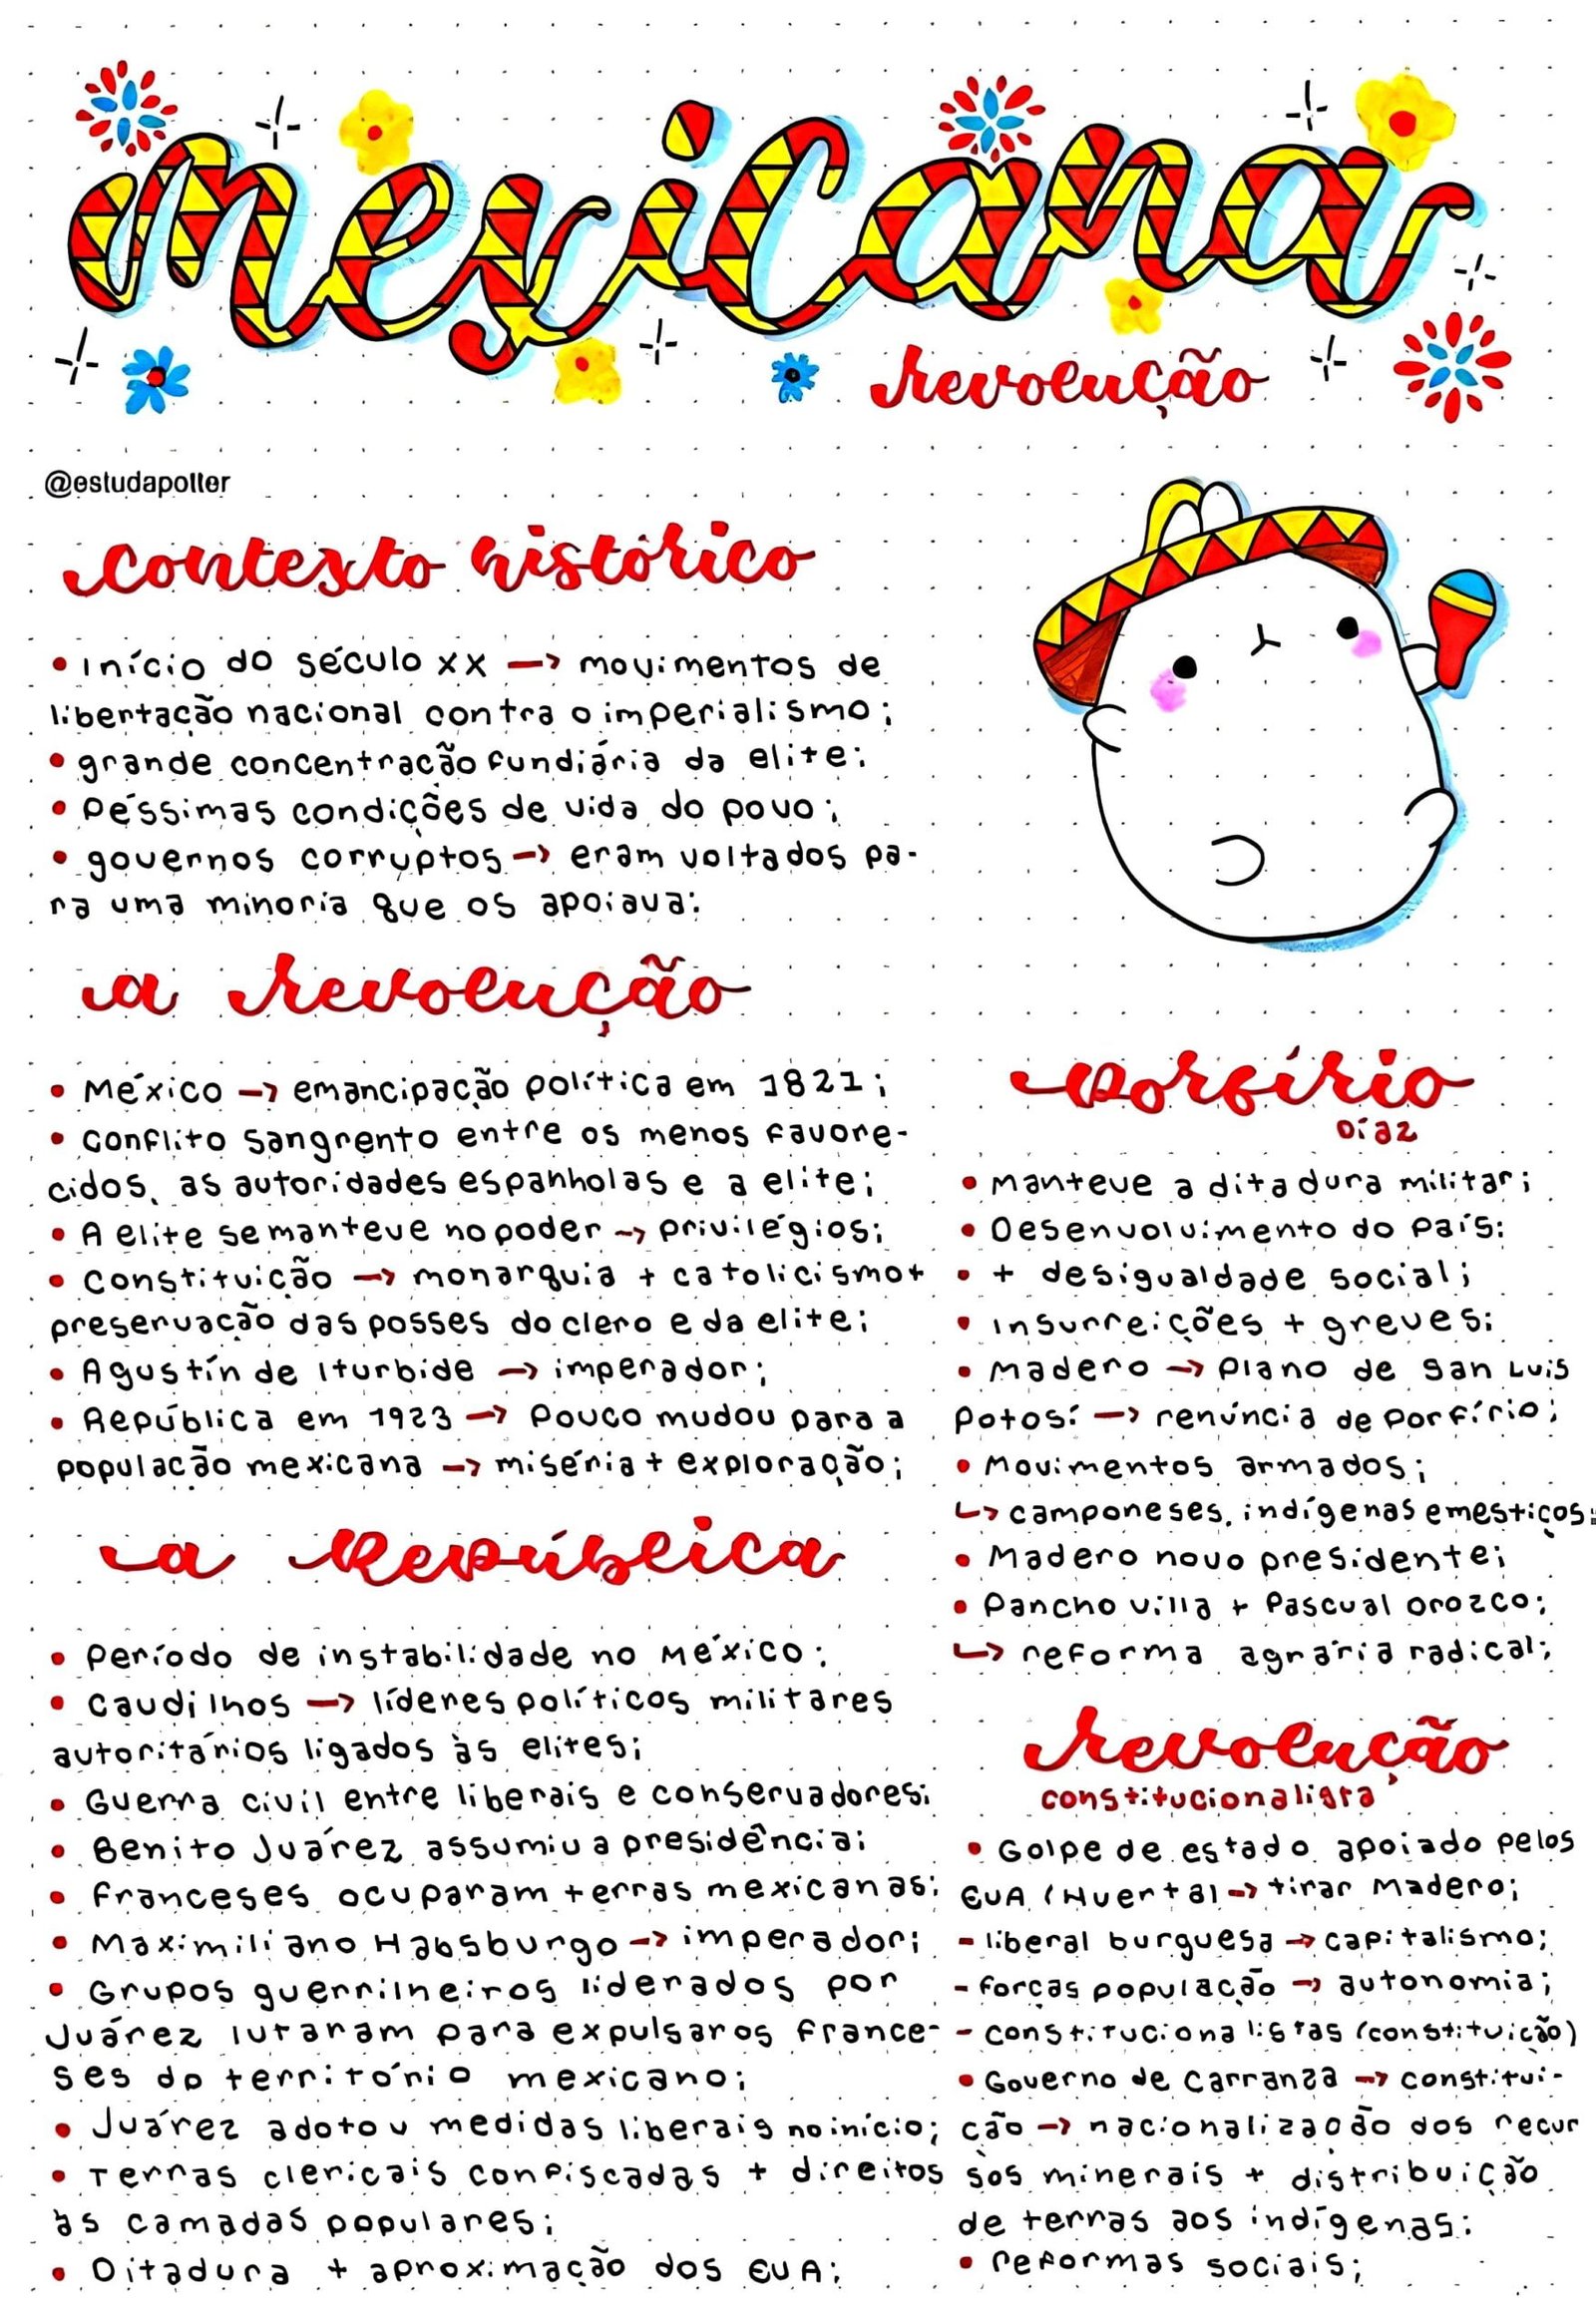 mexicana
revolução
@estudapotter
contexto histórico
• início do século XX → movimentos de
libertação nacional contra o imperialismo;
• grande concentração fundiária da elite;
• Péssimas condições de vida do povo;
• governos corruptos → eram voltados pa-
ra uma minoria que os apoiava;
a revolução
• México → emancipação política em 1821;
• conflito sangrento entre os menos favore-
cidos, as autoridades espanholas e a elite;
• A elite se manteve no poder → privilégios;
• Constituição → monarquia + catolicismo +
preservação das posses do clero e da elite;
• Agustín de Iturbide → imperador;
• República em 1923 → Pouco mudou para a
população mexicana → miséria + exploração;
a República
• Período de instabilidade no México;
• Caudilhos → líderes políticos militares
autoritários ligados às elites;
• Guerra civil entre liberais e conservadores;
• Benito Juárez assumiu a presidência;
• Franceses ocuparam terras mexicanas;
• Maximiliano Habsburgo → imperador;
• Grupos guerrilheiros liderados por
Juárez lutaram para expulsar os france-
ses do território mexicano;
• Juárez adotou medidas liberais no início;
• Terras clericais confiscadas + direitos
às camadas populares;
• Ditadura + aproximação dos EUA;
Porfírio
Díaz
• Manteve a ditadura militar;
• Desenvolvimento do país;
• + desigualdade social;
• insurreições + greves;
• Madero → Plano de San Luis
Potosí → renúncia de Porfírio;
• Movimentos armados;
↳ camponeses, indígenas e mestiços;
• Madero novo presidente;
• Pancho Villa + Pascual Orozco;
↳ reforma agrária radical;
revolução
constitucionalista
• Golpe de estado apoiado pelos
EUA (Huerta) → tirar Madero;
- liberal burguesa → capitalismo;
- forças população → autonomia;
- constitucionalistas (constituição)
• Governo de Carranza → constitui-
ção → nacionalização dos recur
sos minerais + distribuição
de terras aos indígenas;
• reformas sociais;